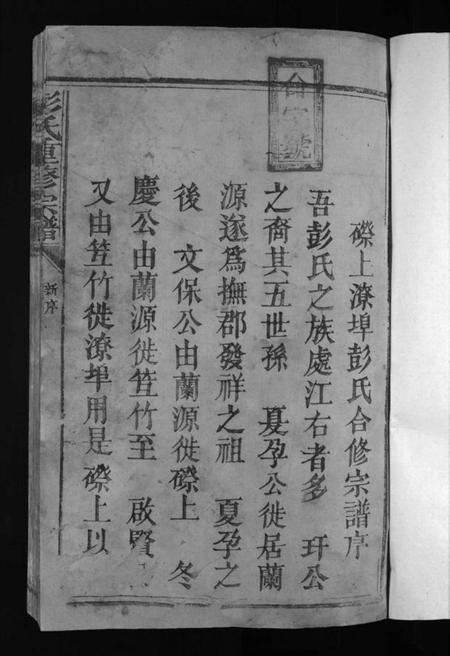 磜上潦埠彭氏合修宗譜序
吾彭氏之族處江右者多 玕公
之裔其五世孫 夏孕公徙居蘭
源遂為撫郡發祥之祖 夏孕之
後 文保公由蘭源徙磜上 冬
慶公由蘭源徙笪竹至 啟賢
又由笪竹徙潦埠用是磜上以
彭氏重修宗譜
新序
號